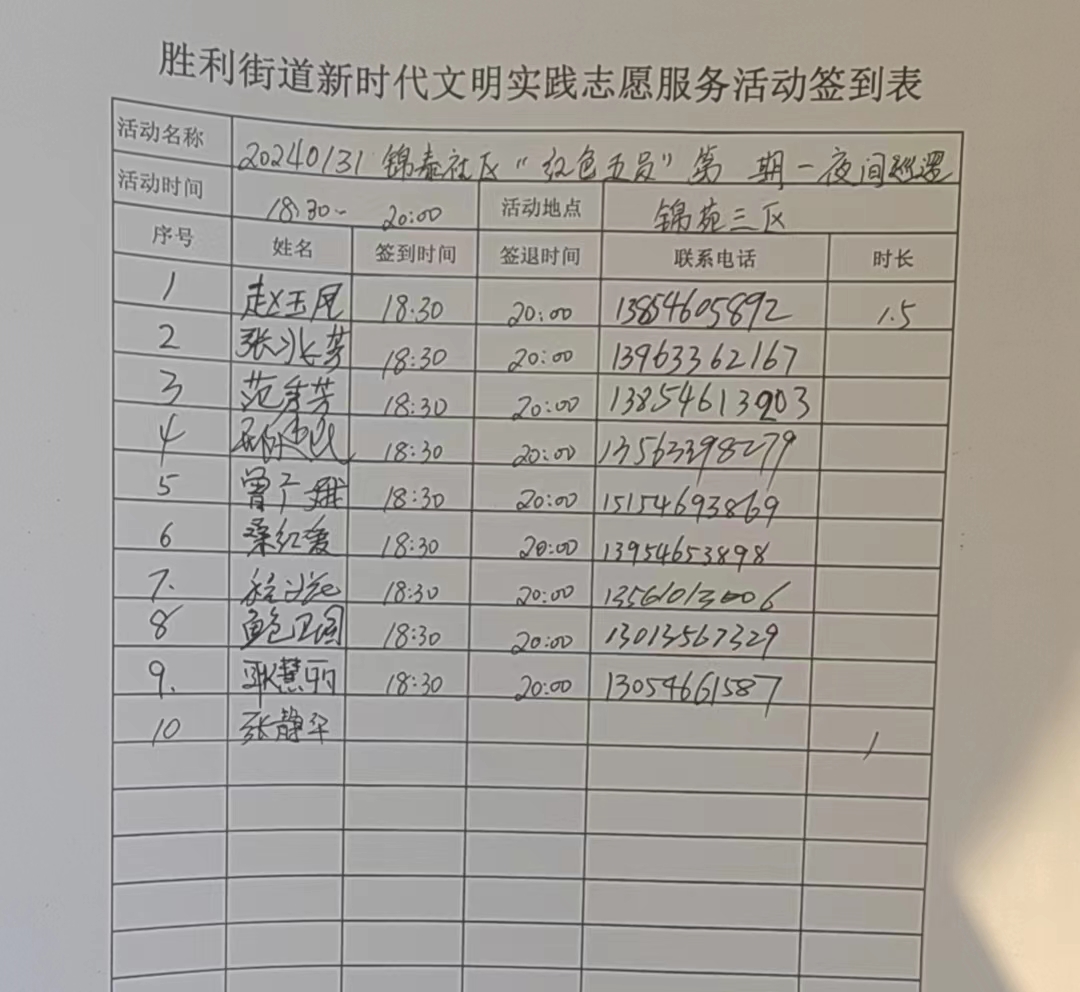 胜利街道新时代文明实践志愿服务活动签到表
活动名称 20240131 锦泰社区“红色五员”第 期一夜间巡逻
活动时间 18:30- 20:00 活动地点 锦苑三区
序号 姓名 签到时间 签退时间 联系电话 时长
1 赵玉凤 18:30 20:00 13854605892 1.5
2 张兆芳 18:30 20:00 13963362167
3 范秀芳 18:30 20:00 13854613903
4 18:30 20:00 13563398279
5 曾广娥 18:30 20:00 15154693869
6 桑红爱 18:30 20:00 13954653898
7. 18:30 20:00 13561013006
8 鱼卫国 18:30 20:00 13013567329
9. 耿慧丽 18:30 20:00 13054661587
10 张静华 1